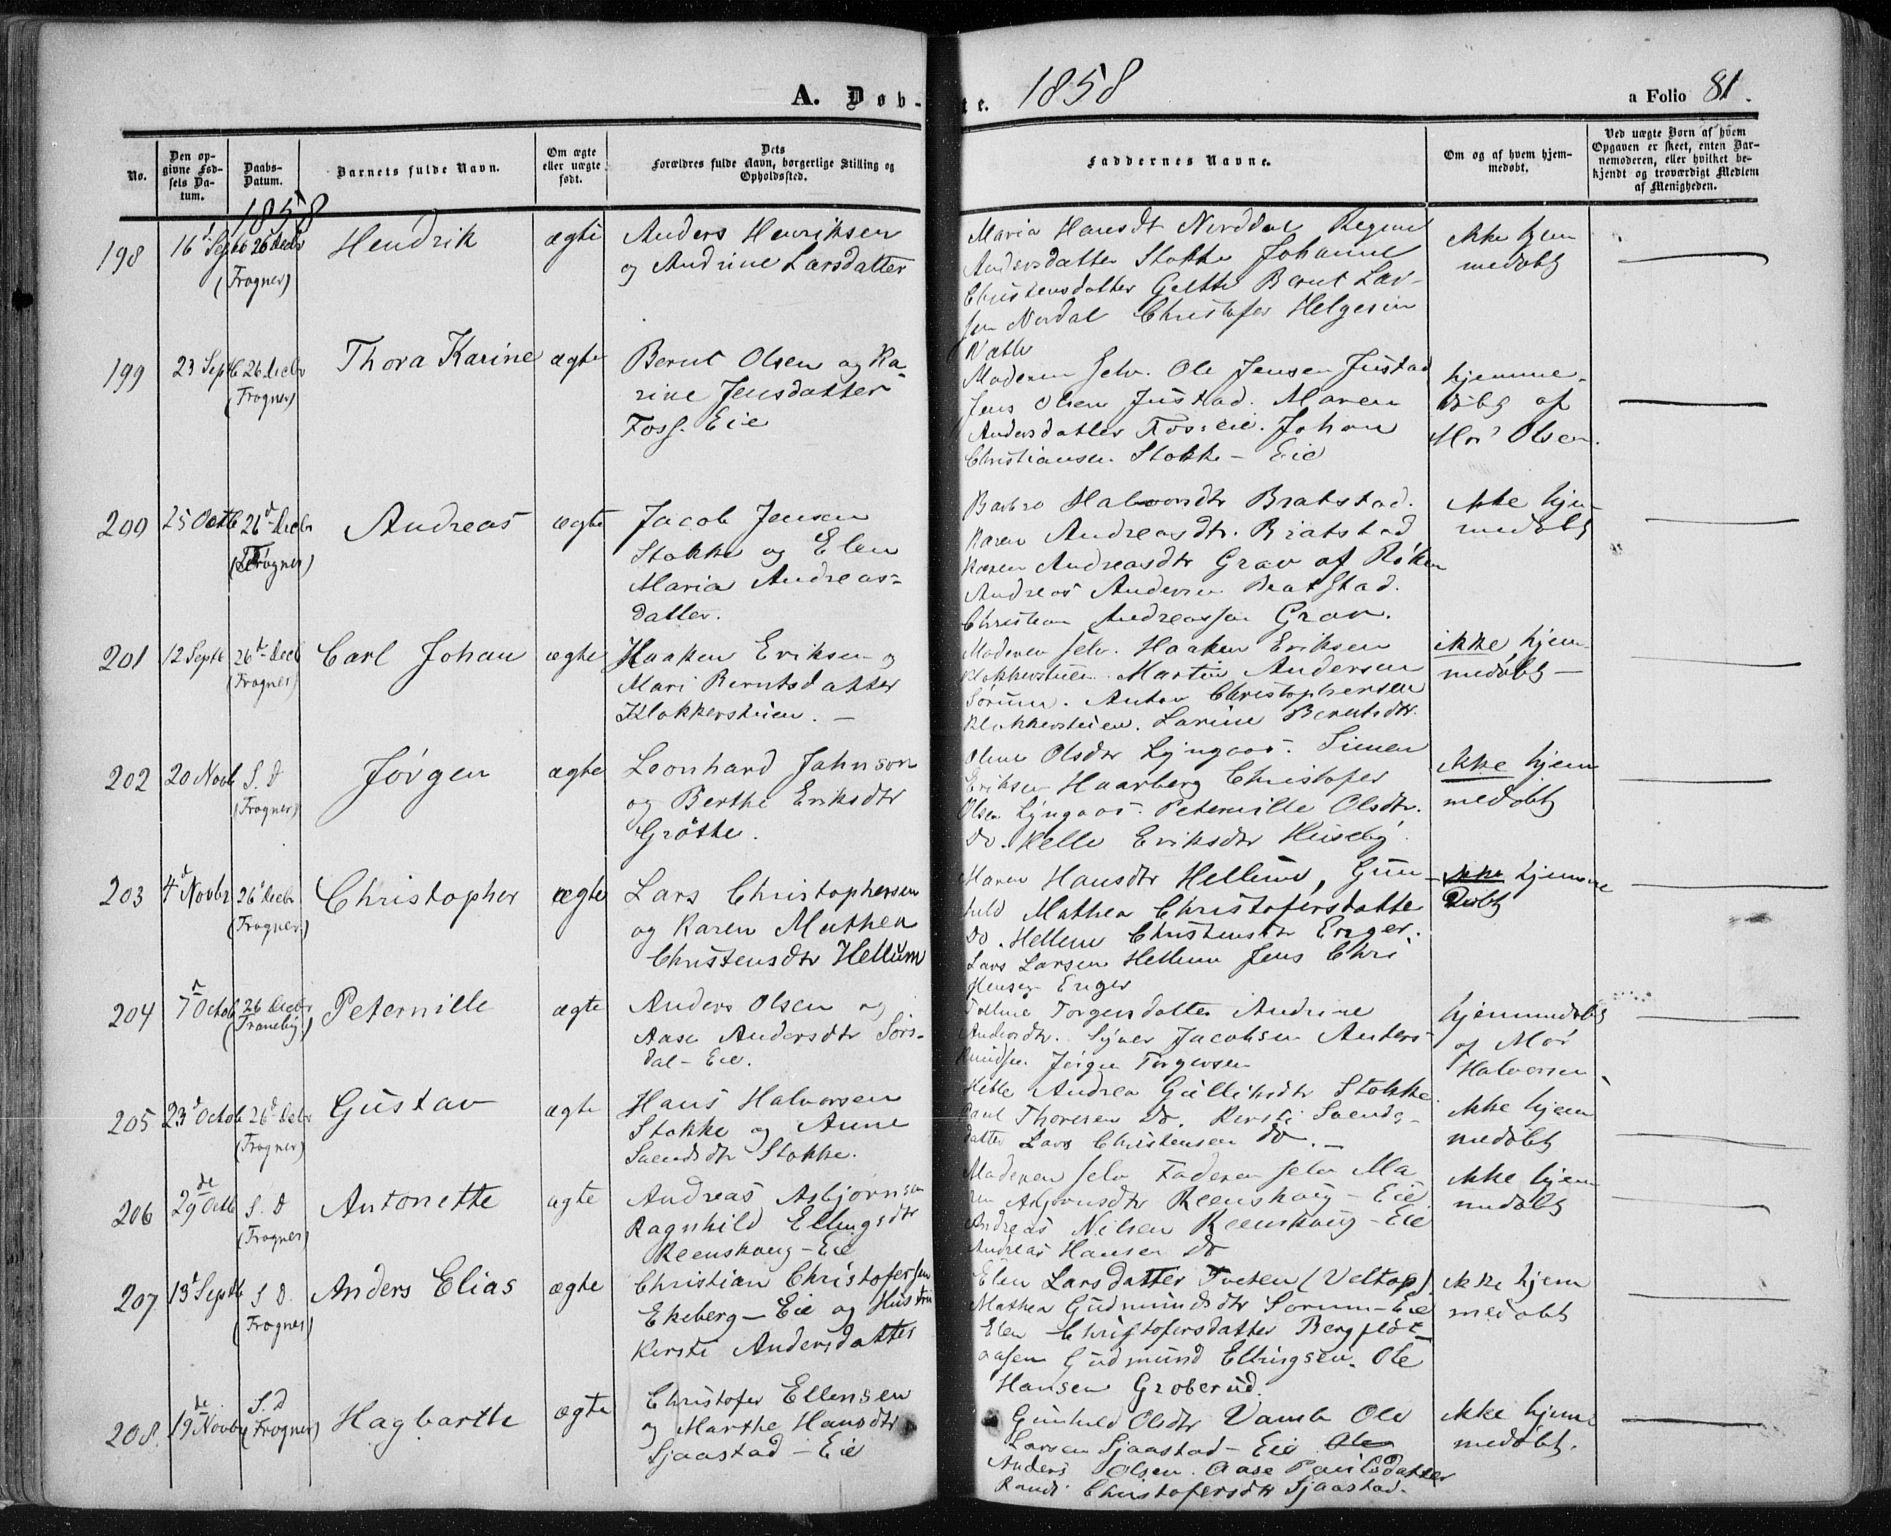 A. Døbte. 1858
a Folio 81.
No.
Den opgivne Fødsels Datum.
Daabs-Datum.
Barnets fulde Navn.
Om ægte eller uægte født.
Dets Forældres fulde Navn, borgerlige Stilling og Opholdssted.
Faddernes Navne.
Om og af hvem hjemmedøbt.
Ved uægte Børn af hvem Opgaven er skeet, enten Barnemoderen, eller hvilket bekjendt og troværdigt Medlem af Menigheden.
1858
198 16d Septb 26 Decbr (Frogner) Hendrik ægte
Anders Henriksen
og Andrine Larsdatter
Maria Hansdt Norddal Regine
Andersdatter Stokke Johanne
Christensdatter Gitte Bernt Lar-
sen Nordal Christofer Helgesen
ikke hjem
medøbt
199 23 Septb 26 Decbr (Frogner) Thora Karine ægte
Bernt Olsen og Ka-
rine Jensdatter
Foss. Eie
Moderen selv. Ole Jensen Justad
Jens Olsen Justad. Maren
Andersdatter Fosseie. Johan
Christiansen Stokke - Eie
hjemme-
døbt af
Mor Olsen.
200 25 Octb 26d Decbr (Frogner) Andreas ægte
Jacob Jensen
Stokke og Elen
Maria Andreas-
datter.
Barbro Halvorsdtr Bratstad.
Karen Andreasdtr. Bratstad
Karen Andreasdtr Grav af Røken
Andreas Andersen Bratstad.
Christian Andreassen Grav.
ikke hjem-
medøbt
201 12 Septb 26d Decb (Frogner) Carl Johan ægte
Haaken Eriksen og
Mari Berntsdatter
Klokkerstuen. -
Moderen selv. Haaken Eriksen
Klokkerstuen. Martin Andersen
Sørum. Anton Christophersen
Klokkerstuen. Larine Berntsdtr.
ikke hjem
medøbt -
202 20 Novb S. D (Frogner) Jørgen ægte
Leonhard Johnson
og Berthe Eriksdtr
Grøtte.
Oline Olsdtr Lyngaas. Simen
Eriksen Haarberg Christofer
Olsen Lyngaas. Peternille Olsdtr.
Do. Helle Eriksdtr Huseby.
ikke hjem
medøbt
203 4d Novbr 26d Decbr (Frogner) Christopher ægte
Lars Christophersen
og Karen Mathea
Christensdtr Hellum
Maren Hansdtr Hellum, Gun-
hild Mathea Christofersdatte
Do. Hellum Christensdtr Enger.
Lars Larsen Hellum Jens Chri
Enger
ikke hjemme
døbt
204 7d Octob 26 Decbr (Traneby) Peternille ægte
Anders Olsen og
Aase Andersdtr Sørs-
dal - Eie.
Torgersdatter Andrine
Andersdtr. Syver Jacobsen Anders
Knudsen Jørgen Torgersen
hjemmedøbt
af Mor
Halvorsen
205 23d Octob 26d Decbr (Frogner) Gustav ægte
Hans Halvorsen
Stokke og Anne
Svendsdtr Stokke.
Helle Andrea Gulliksdtr Stokke
Paul Thoresen Do. Kersti Svends-
datter Lars Christensen Do. -
ikke hjem
medøbt
206 29de Octb S. D (Frogner) Antonette ægte
Andreas Asbjørnsen
Ragnhild Ellingsdtr
Reenskoug - Eie
Moderen selv Faderen selv Ma
ren Asbjørnsdtr Reenskoug - Eie
Andreas Nilsen Reenskoug - Eie
Andreas Hansen Do
ikke hjem
medøbt
207 13d Septb S. D. (Frogner) Anders Elias ægte
Christian Christofersen
Ekeberg - Eie og Hustru
Kersti Andersdatter
Elen Larsdatter Tveten (Veltop).
Mathea Gudmundsdtr Sørum - Eie
Elen Christofersdatter Bergfløt
aasen Gudmund Ellingsen. Ole
Hansen Groberud.
ikke hjem
medøbt
208. 19de Novbr S. d (Frogner) Hagbarth ægte
Christofer Ellensen
og Marthe Hansdtr
Sjaastad - Eie
Gunhild Olsdtr Vamb Ole
Larsen Sjaastad - Eie Ole
Anders Olsen. Aase Paulsdatter
Randi Christofersdtr Sjaastad.
ikke hjem
medøbt.